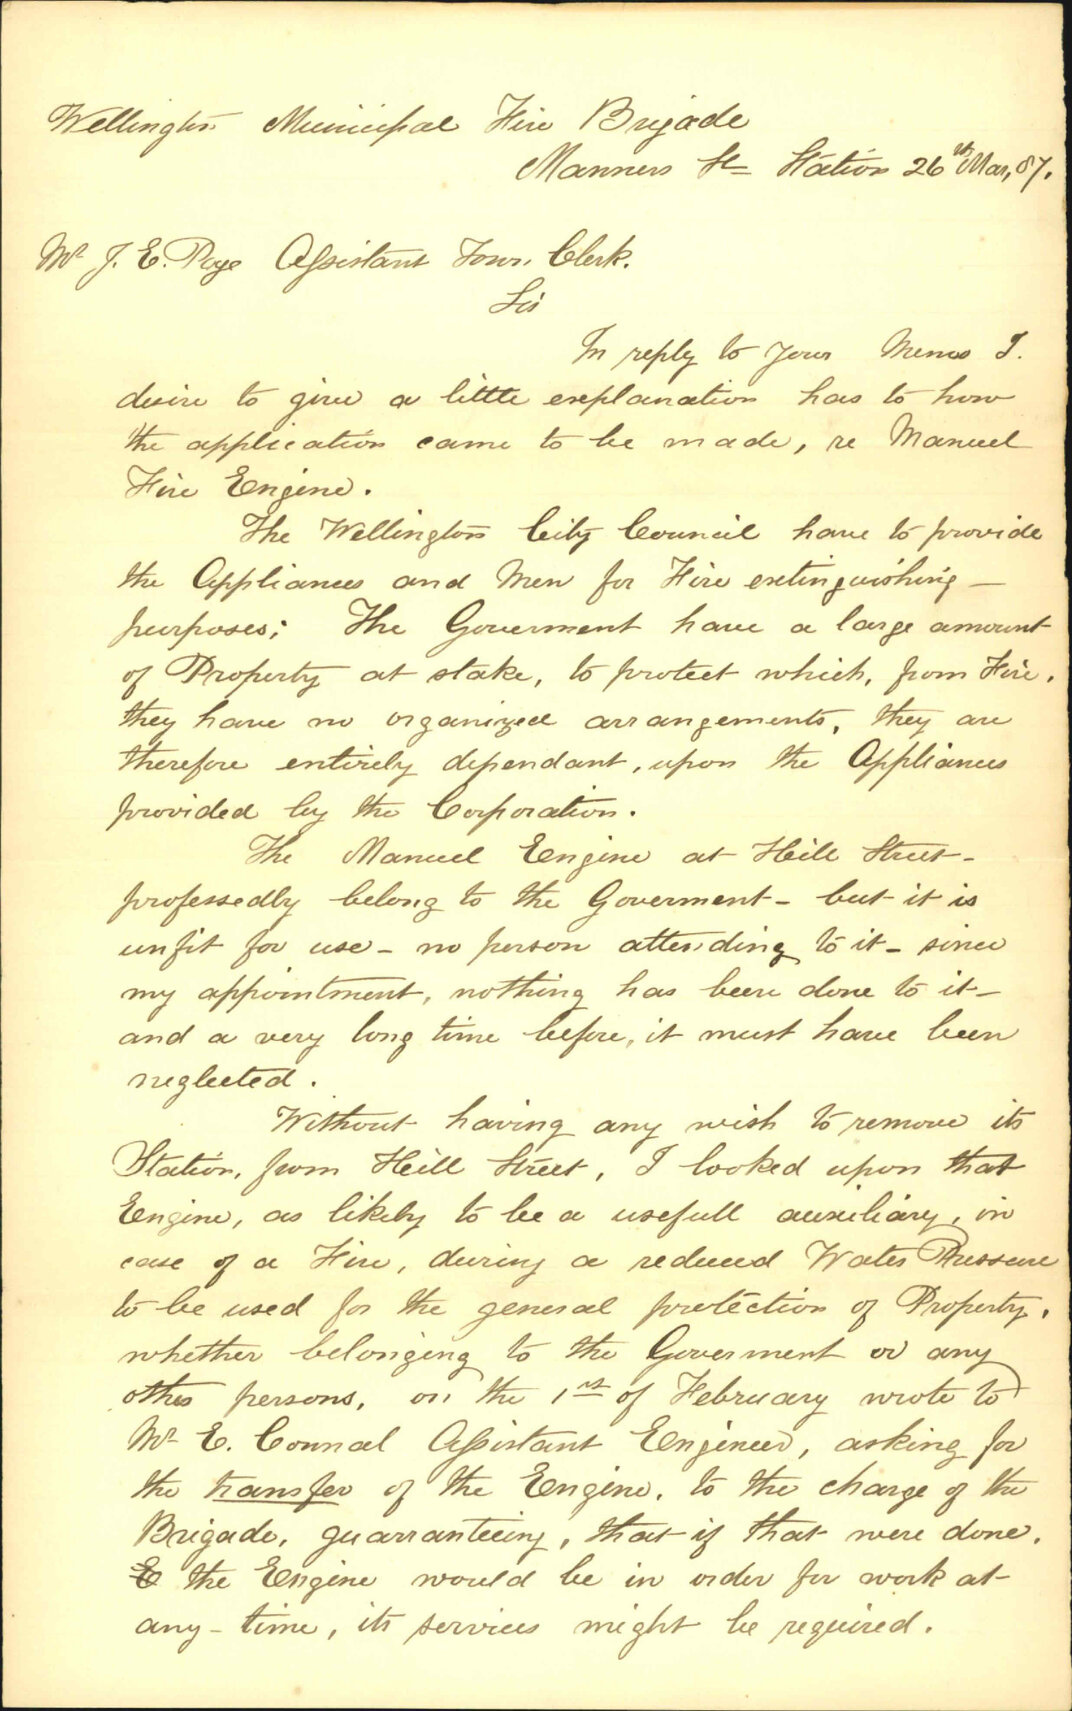 Wellington Municipal Fire Brigade
Manners St Station 26th Mar, 87.
Mr J. E. Page Assistant Town Clerk.
Sir
In reply to your Memo I.
desire to give a little explanation has to how
the application came to be made, re Manuel
Fire Engine.
The Wellington City Council have to provide
the Appliances and Men for Fire extinguishing —
purposes; The Goverment have a large amount
of Property at stake, to protect which, from Fire,
they have no organized arrangements, they are
therefore entirely dependant, upon the Appliances
provided by the Corporation.
The Manuel Engine at Hill Street -
professedly belong to the Goverment - but it is
unfit for use - no person attending to it - since
my appointment, nothing has been done to it -
and a very long time before, it must have been
neglected.
Without having any wish to remove its
Station, from Hill Street, I looked upon that
Engine, as likely to be a usefull auxiliary, in
case of a Fire, during a reduced Water Pressure
to be used for the general protection of Property,
whether belonging to the Goverment or any
other persons, on the 1st of February wrote to
Mr E. Counal Assistant Engineer, asking for
the transfer of the Engine, to the charge of the
Brigade, guarranteeing, that if that were done,
E the Engine would be in order for work at
any - time, its services might be required.